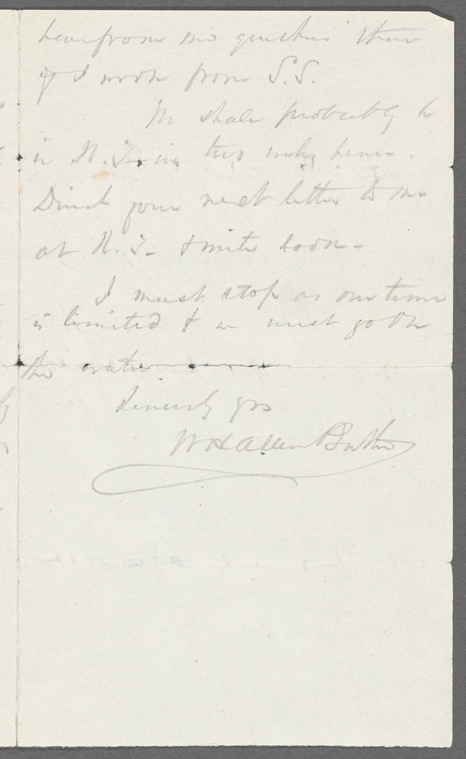 hear from me quicker than
if I wrote from S.S.
We shall probably be
in N.Y. in two weeks hence.
Direct your next letter to me
at N.Y. & write soon -
I must stop as our time
is limited & we must go to
the
Sincerely yrs
Wm Allen Butler